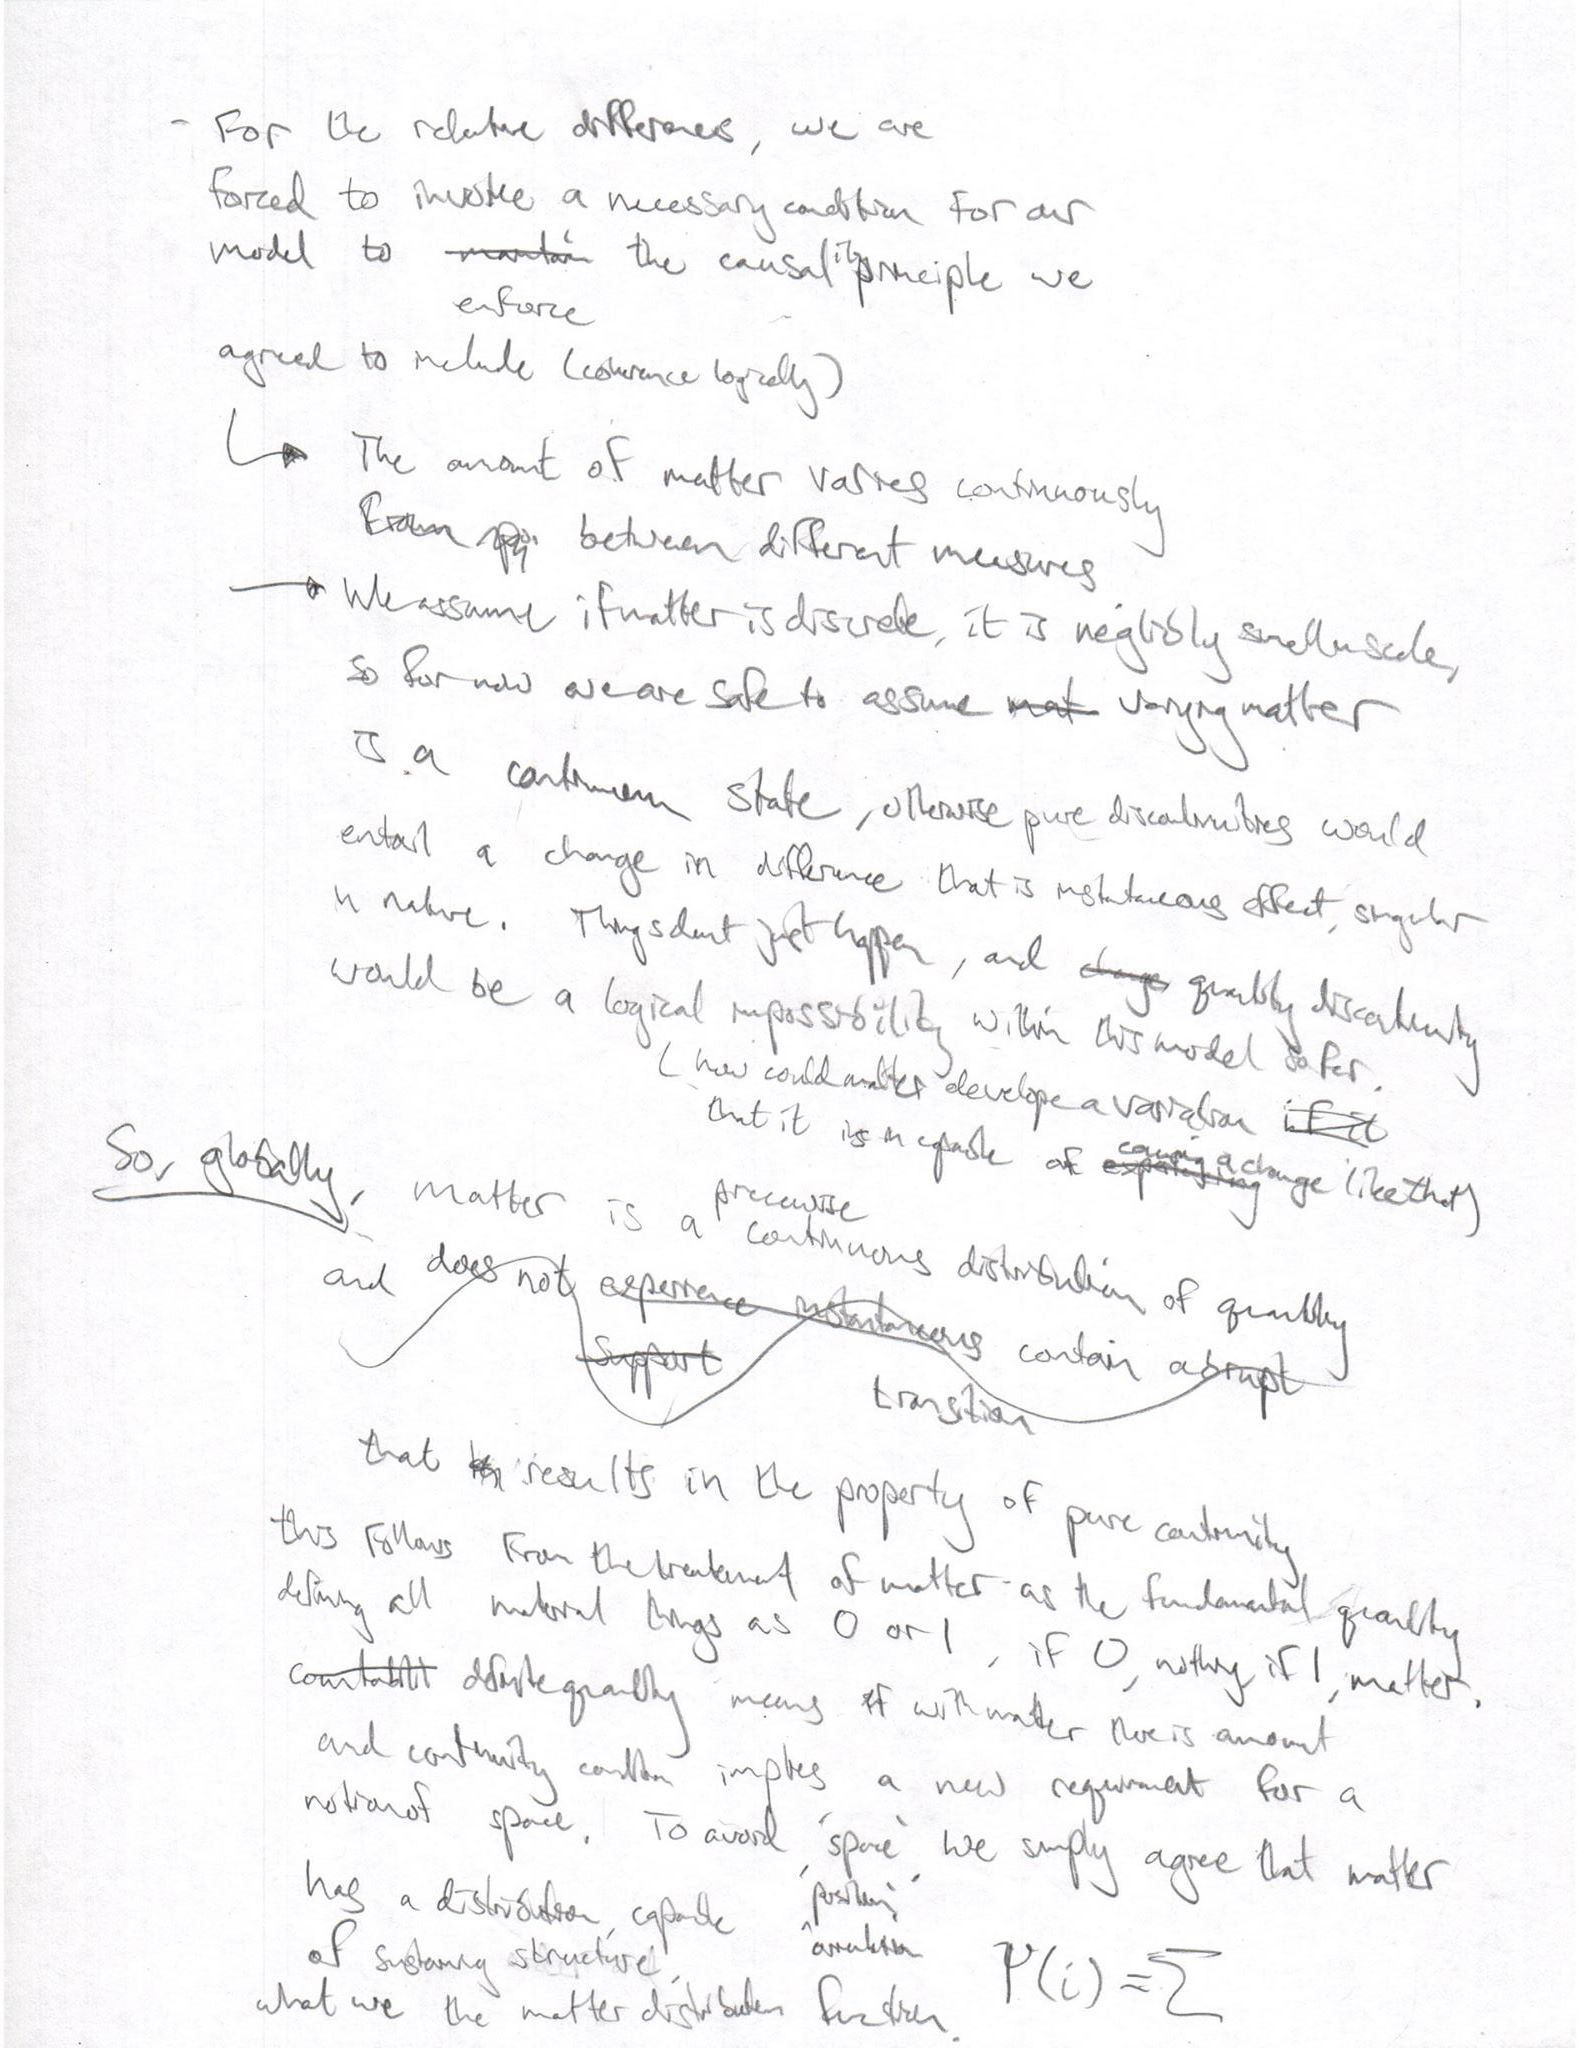 - For the relative differences, we are
forced to invoke a necessary condition for our
model to maintain the causality principle we
enforce
agreed to include (coherence logically)
The amount of matter varies continuously
From between different measures
We assume if matter is discrete, it is neglibly small in scale,
so for now we are safe to assume mat varying matter
is a continuum state, otherwise pure discontinuities would
entail a change in difference that is instantaneous effect, singular
in nature. Things dont just happen, and change quantity discontinuity
would be a logical impossibility within this model so far.
(how could matter develope a variation if it
that it is incapable of causing a change like that)
So, globally, matter is a piecewise
continuous distribution of quantity
and does not experience instantaneous contain abrupt
support
transition
that results in the property of pure continuity
this follows from the treatement of matter as the fundamental quantity
defining all material things as 0 or 1, if 0, nothing if 1, matter.
definite quantity means if with matter there is amount
and continuity condition implies a new requirment for a
notion of space. To avoid 'space' we simply agree that matter
has a distribution, capable
of sustaining structure.
what we the matter distribution function.
Ψ(i) = Σ